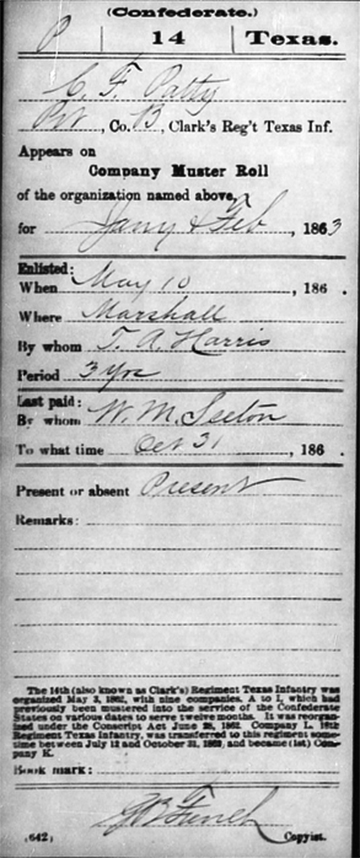 (Confederate.)
P | 14 | Texas.
C. F. Patty
Pvt, Co. B, Clark's Reg't Texas Inf.
Appears on
Company Muster Roll
of the organization named above,
for Jany & Feb, 1863
Enlisted:
When May 10, 186 .
Where Marshall
By whom T. A. Harris
Period 3 yrs
Last paid:
By whom W. M. Seeton
To what time Oct 31, 186 .
Present or absent Present
Remarks:
The 14th (also known as Clark's) Regiment Texas Infantry was
organized May 3, 1862, with nine companies, A to I, which had
previously been mustered into the service of the Confederate
States on various dates to serve twelve months. It was reorgan-
ized under the Conscript Act June 28, 1862. Company L, 16th
Regiment Texas Infantry, was transferred to this regiment some-
time between July 12 and October 31, 1862, and became (1st) Com-
pany K.
Book mark:
Finch
(642) Copyist.